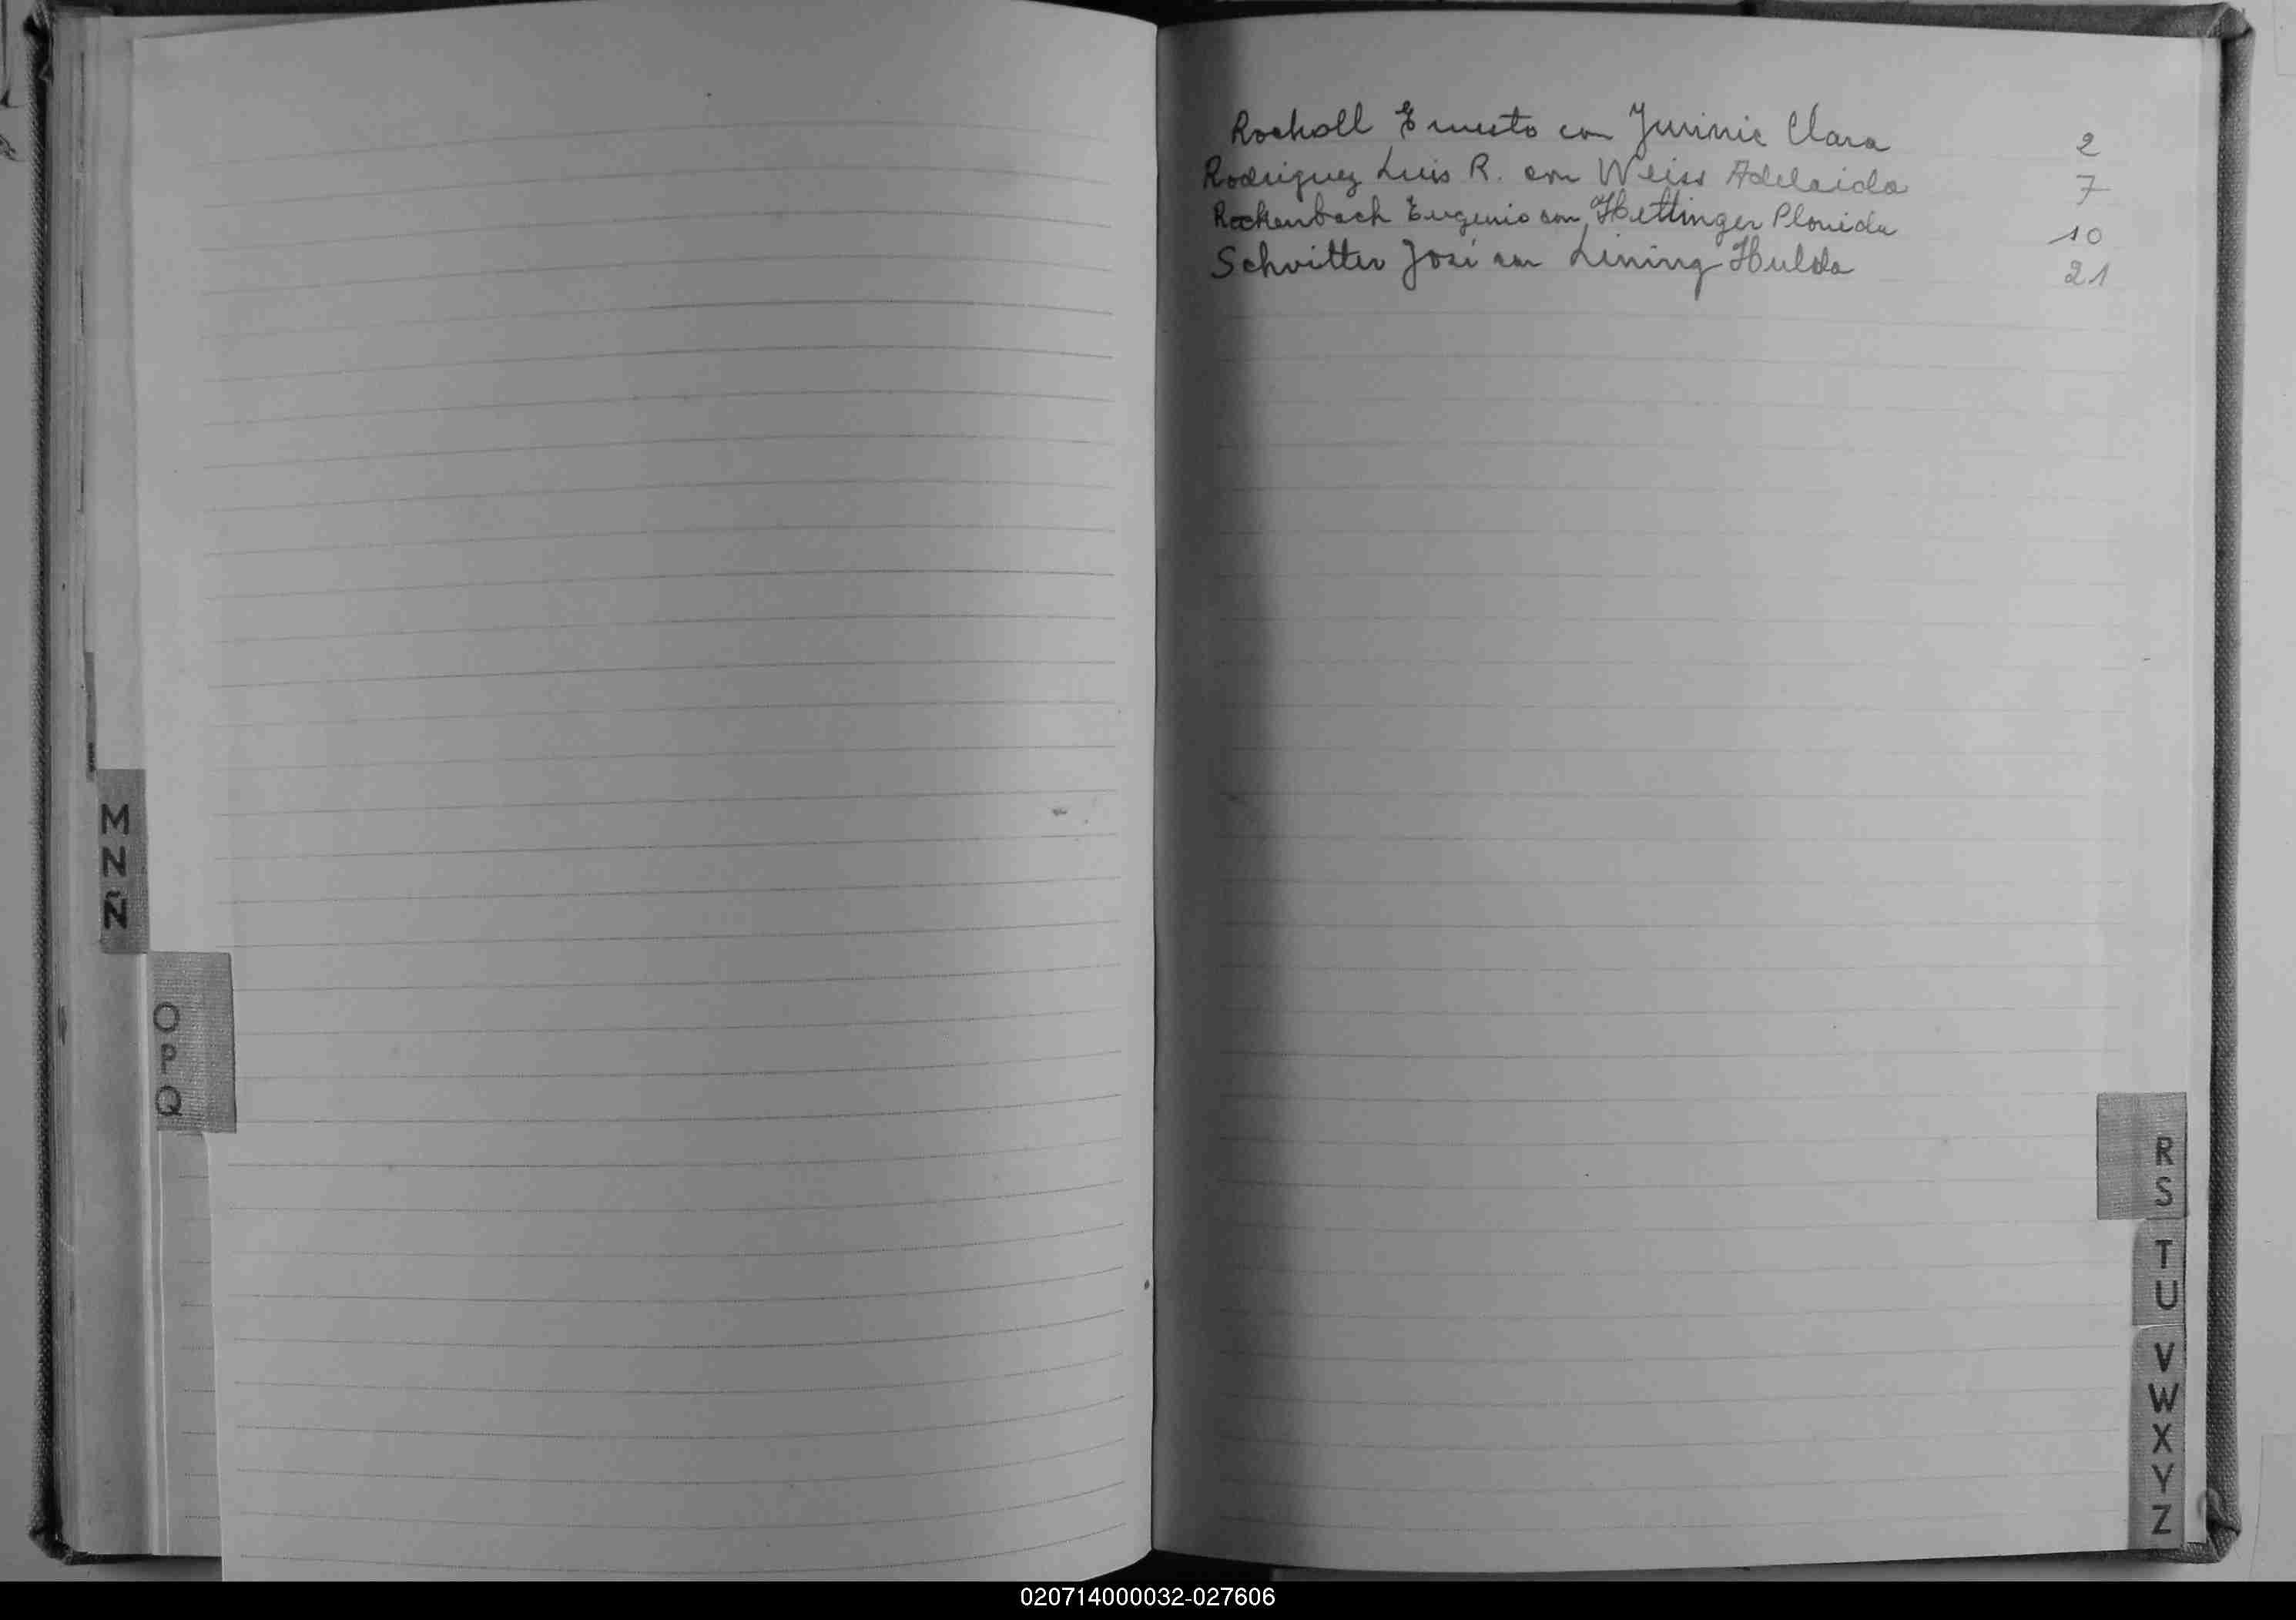 Rocholl Ernesto con Jurinic Clara 2
Rodriguez Luis R. con Weiss Adelaida 7
Rockenbach Eugenio con Hettinger Plonida 10
Schvitter José con Lining Hulda 21
M
N
Ñ
O
P
Q
R
S
T
U
V
W
X
Y
Z
020714000032-027606